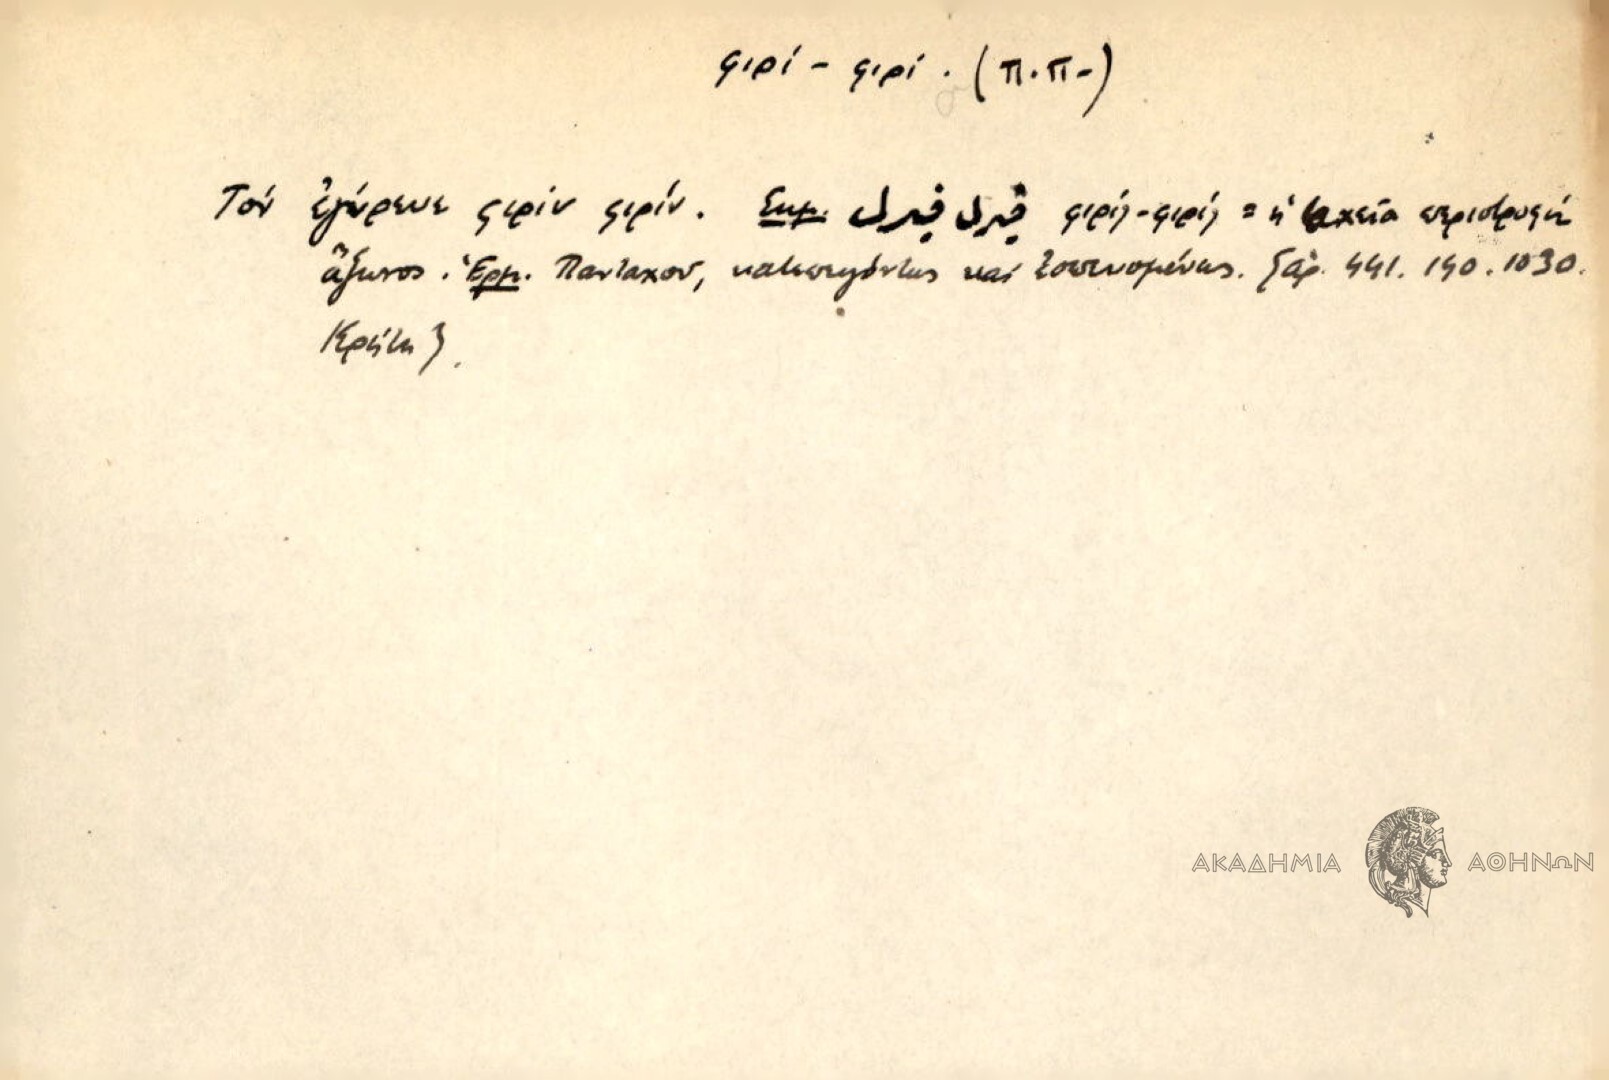 φιρί - φιρί. (Π.Π-)
Τόν ἐγύρευε φιρίν φιρίν. Σημ. فيرل فيرل φιρίλ-φιρίλ = ἡ ταχεῖα περιστροφή
ἄξωνος. Ἑρμ. Πανταχοῦ, κατεπειγόντως καί ἐσπευσμένως. {ἀρ. 441. 190. 1030.
Κρήτη}.
ΑΚΑΔΗΜΙΑ ΑΘΗΝΩΝ